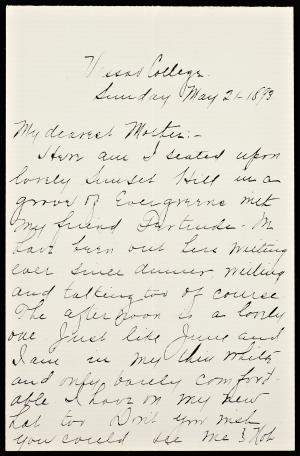 Vassar College.
Sunday May 21-1893
My dearest Mother:-
Here am I seated upon
lovely Sunset Hill in a
grove of Evergreens with
my friend Gertrude. We
have been out here writing
ever since dinner, writing
and talking too of course.
The afternoon is a lovely
one just like June and
I am in my thin white
and only barely comfort-
able I have on my new
hat too Don't you wish
you could see me?